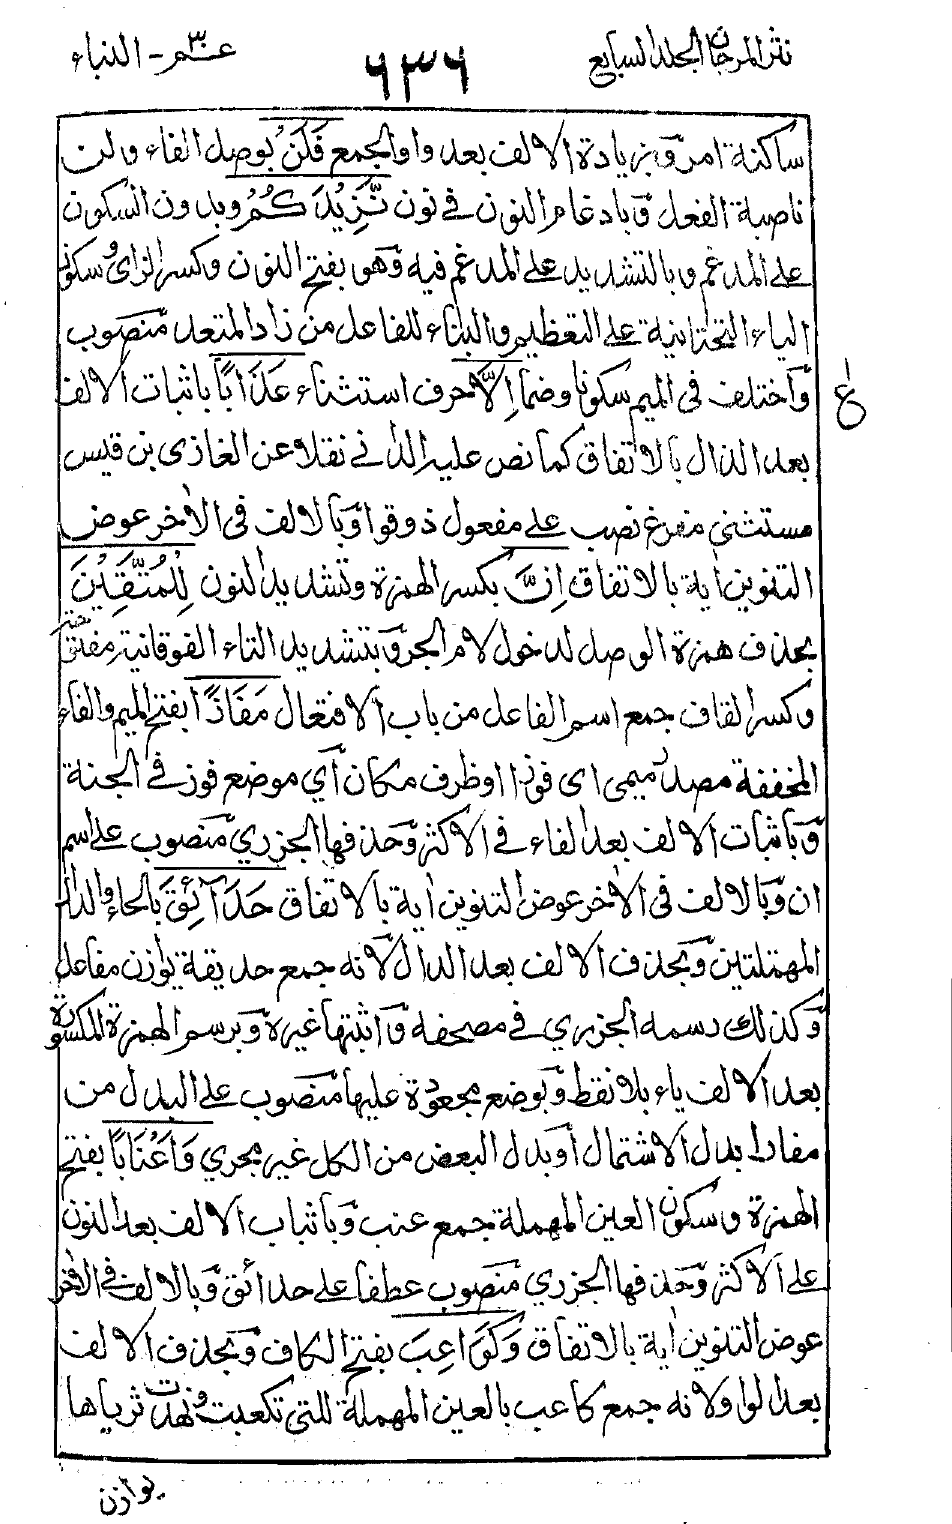 نثر المرجان المجلد السابع
٦٣٦
عم ٣٠ - النباء
ساكنة امر وبزيادة الالف بعد واو الجمع فَلَنْ بوصل الفاء ولن
ناصبة الفعل وبادغام النون في نون نَّزِيْدَكُمْ وبدون السكون
على المدغم وبالتشديد على المدغم فيه وهو بفتح النون وكسر الزاى وسكون
الياء التحتانية على التعظيم والبناء للفاعل من زاد المتعد منصوب
واختلف في الميم سكونا وضما اِلَّا حرف استثناء عَذَاباً باثبات الالف
بعد الذال بالاتفاق كما نص عليه الداني نقلا عن الغازى بن قيس
مستثنى مفرغ نصب على مفعول ذوقوا وبالالف في الاخر عوض
التنوين اية بالاتفاق اِنَّ بكسر الهمزة وتشديد النون لِلْمُتَّقِيْنَ
بحذف همزة الوصل لدخول لام الجر وبتشديد التاء الفوقانية مفتوحة
وكسر القاف جمع اسم الفاعل من باب الافتعال مَفَازًا بفتح الميم والفاء
المخففة مصدر ميمى اى فوزا او ظرف مكان اي موضع فوز في الجنة
وباثبات الالف بعد الفاء في الاكثر وحذفها الجزري منصوب على اسم
ان وبالالف في الاخر عوض التنوين اية بالاتفاق حَدَآئِقَ بالحاء والدال
المهملتين وبحذف الالف بعد الدال لانه جمع حديقة يوازن مفاعل
وكذلك رسمه الجزري في مصحفه واثبتها غيره وبرسم الهمزة المكسورة
بعد الالف ياء بلا نقط وبوضع مجعودة عليها منصوب على البدل من
مفازا بدل الاشتمال او بدل البعض من الكل غير مجري وَاَعْنَاباً بفتح
الهمزة وسكون العين المهملة جمع عنب وباثبات الالف بعد النون
على الاكثر وحذفها الجزري منصوب عطفا على حدائق وبالالف في الاخر
عوض التنوين اية بالاتفاق وَكَوَاعِبَ بفتح الكاف وبحذف الالف
بعد الواو لانه جمع كاعب بالعين المهملة للتي تكعبت ونهدت ثدياها
يوازن
ع